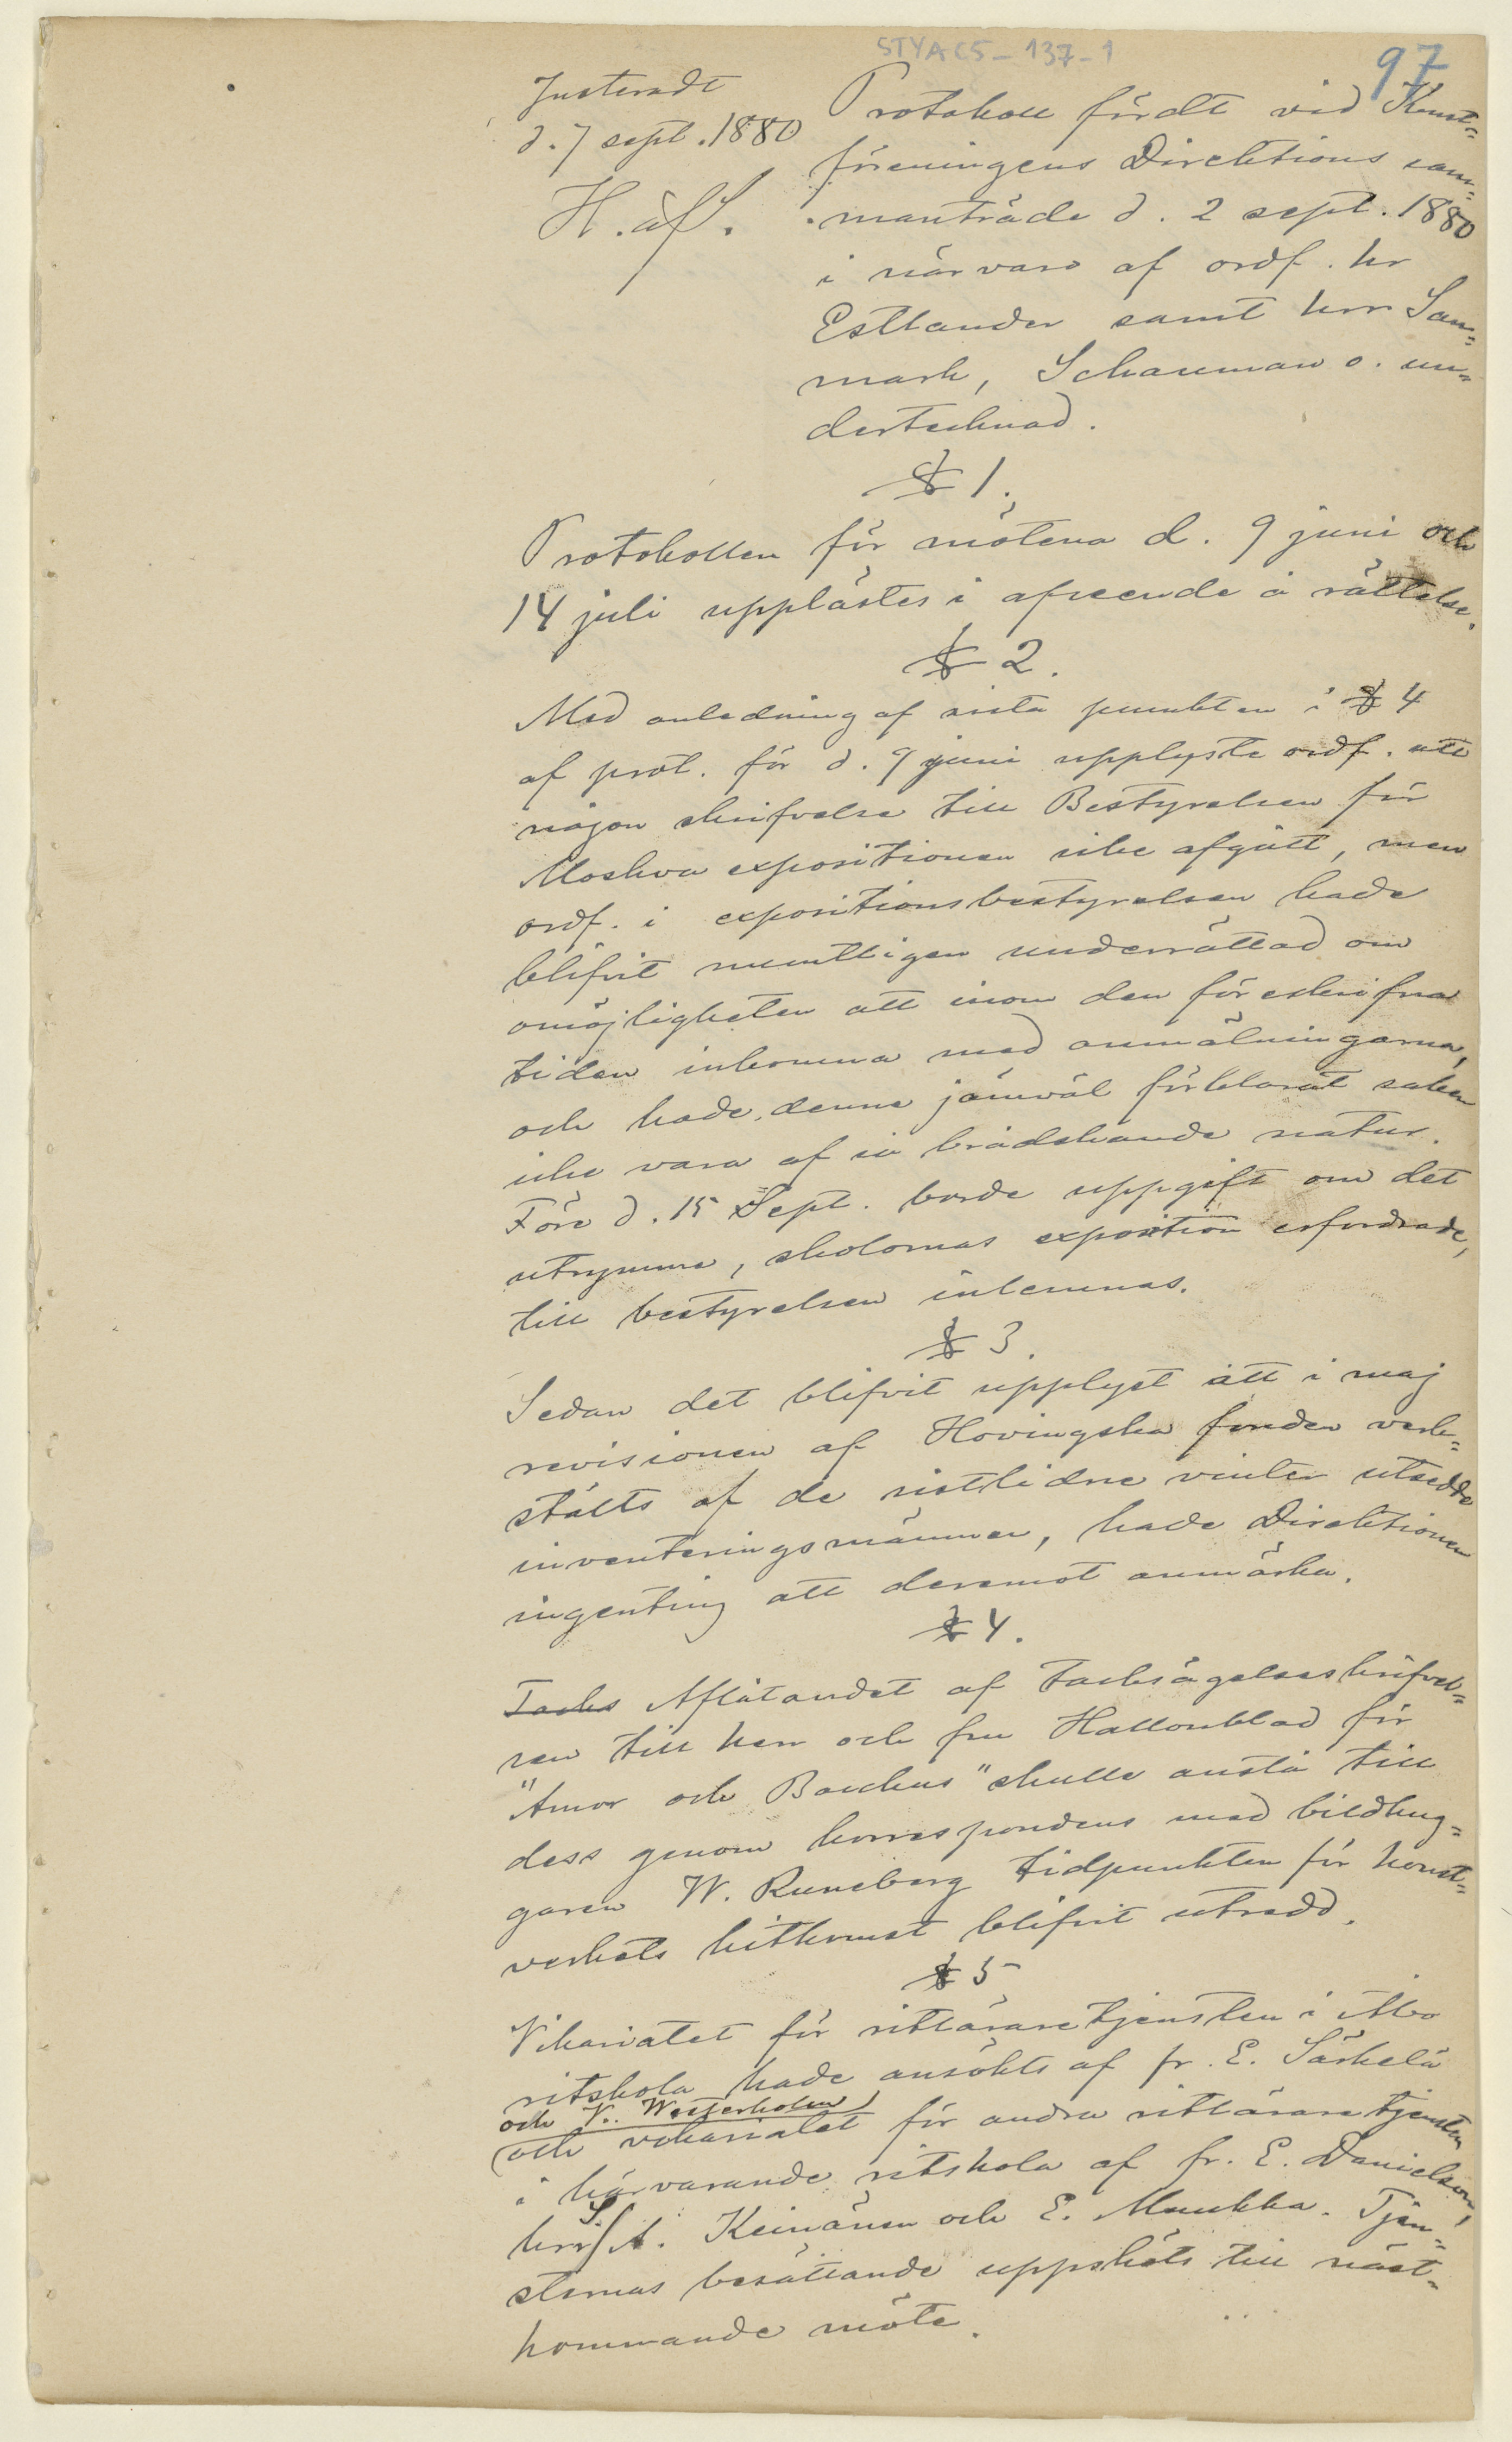 STYAC5-137-1
97
Justeradt
d. 7 sept. 1880
H. af S.
Protokoll fördt vid Konst-
föreningens Direktions sam-
manträde d. 2 sept. 1880
i närvaro af ordf. hr
Estlander samt hrr San-
mark, Schauman o. un-
dertecknad.
§ 1.
Protokollen för mötena d. 9 juni och
14 juli upplästes i afseende å rättelse.
§ 2.
Med anledning af sista punkten i § 4
af prot. för d. 9 juni upplyste ordf. att
någon skrifvelse till Bestyrelsen för
Moskva expositionen icke afgått, men
ordf. i expositionsbestyrelsen hade
blifvit muntligen underrättad om
omöjligheten att inom den föreskrifna
tiden inkomma med anmälningarna,
och hade denne jämväl förklarat saken
icke vara af så brådskande natur.
Före d. 15 Sept. borde uppgift om det
utrymme, skolornas exposition erfordrade,
till bestyrelsen inlemnas.
§ 3.
Sedan det blifvit upplyst att i maj
revisionen af Hovingska fonden verk-
stälts af de sistlidne vinter utsedde
inventeringsmännen, hade Direktionen
ingenting att deremot anmärka.
§ 4.
Tacks Aflåtandet af tacksägelseskrifvel-
sen till herr och fru Hallonblad för
"Amor och Bacchus" skulle anstå till
dess genom korrespondens med bildhug-
garen W. Runeberg tidpunkten för konst-
verkets hitkomst blifvit utredd.
§ 5
Vikariatet för ritlärare tjensten i Åbo
ritskola hade ansökts af fr. E. Särkelä
och V. Westerholm
och vikariatet för andra ritlärare tjensten
i härvarande ritskola af fr. E. Danielson,
hrr S. A. Keinänen och E. Muukka. Tjen-
sternas besättande uppsköts till näst-
kommande möte.